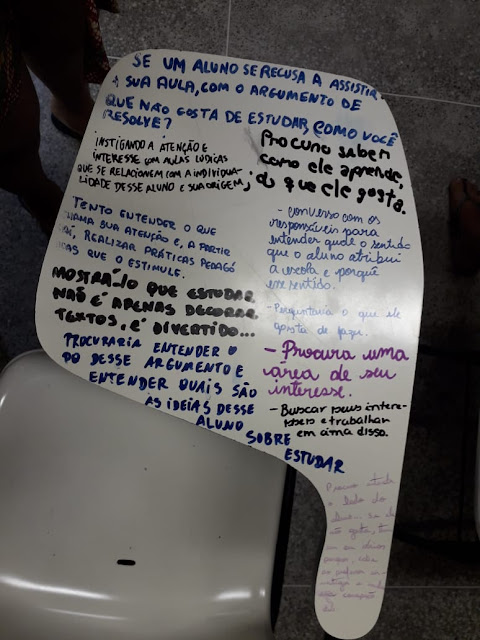 SE UM ALUNO SE RECUSA A ASSISTIR
A SUA AULA, COM O ARGUMENTO DE
QUE NÃO GOSTA DE ESTUDAR, COMO VOCÊ
RESOLVE?
INSTIGANDO A ATENÇÃO E
INTERESSE COM AULAS LÚDICAS
QUE SE RELACIONEM COM A INDIVIDUA-
LIDADE DESSE ALUNO E SUA ORIGEM;
TENTO ENTENDER O QUE
CHAMA SUA ATENÇÃO E, A PARTIR
DAÍ, REALIZAR PRÁTICAS PEDAGÓ
GICAS QUE O ESTIMULE.
MOSTRÁ-LO QUE ESTUDAR
NÃO É APENAS DECORAR
TEXTOS, É DIVERTIDO...
PROCURARIA ENTENDER O
PQ DESSE ARGUMENTO E
ENTENDER QUAIS SÃO
AS IDEIAS DESSE
ALUNO
SOBRE
ESTUDAR
Procuro saber
como ele aprende,
do que ele gosta.
- Converso com os
responsáveis para
entender qual o sentido
que o aluno atribui
a escola e porquê
esse sentido.
- Perguntaria o que ele
gosta de fazer.
- Procura uma
área de seu
interesse.
- Buscar seus interes-
ses e trabalhar
em cima disso.
Procuro
o lado do